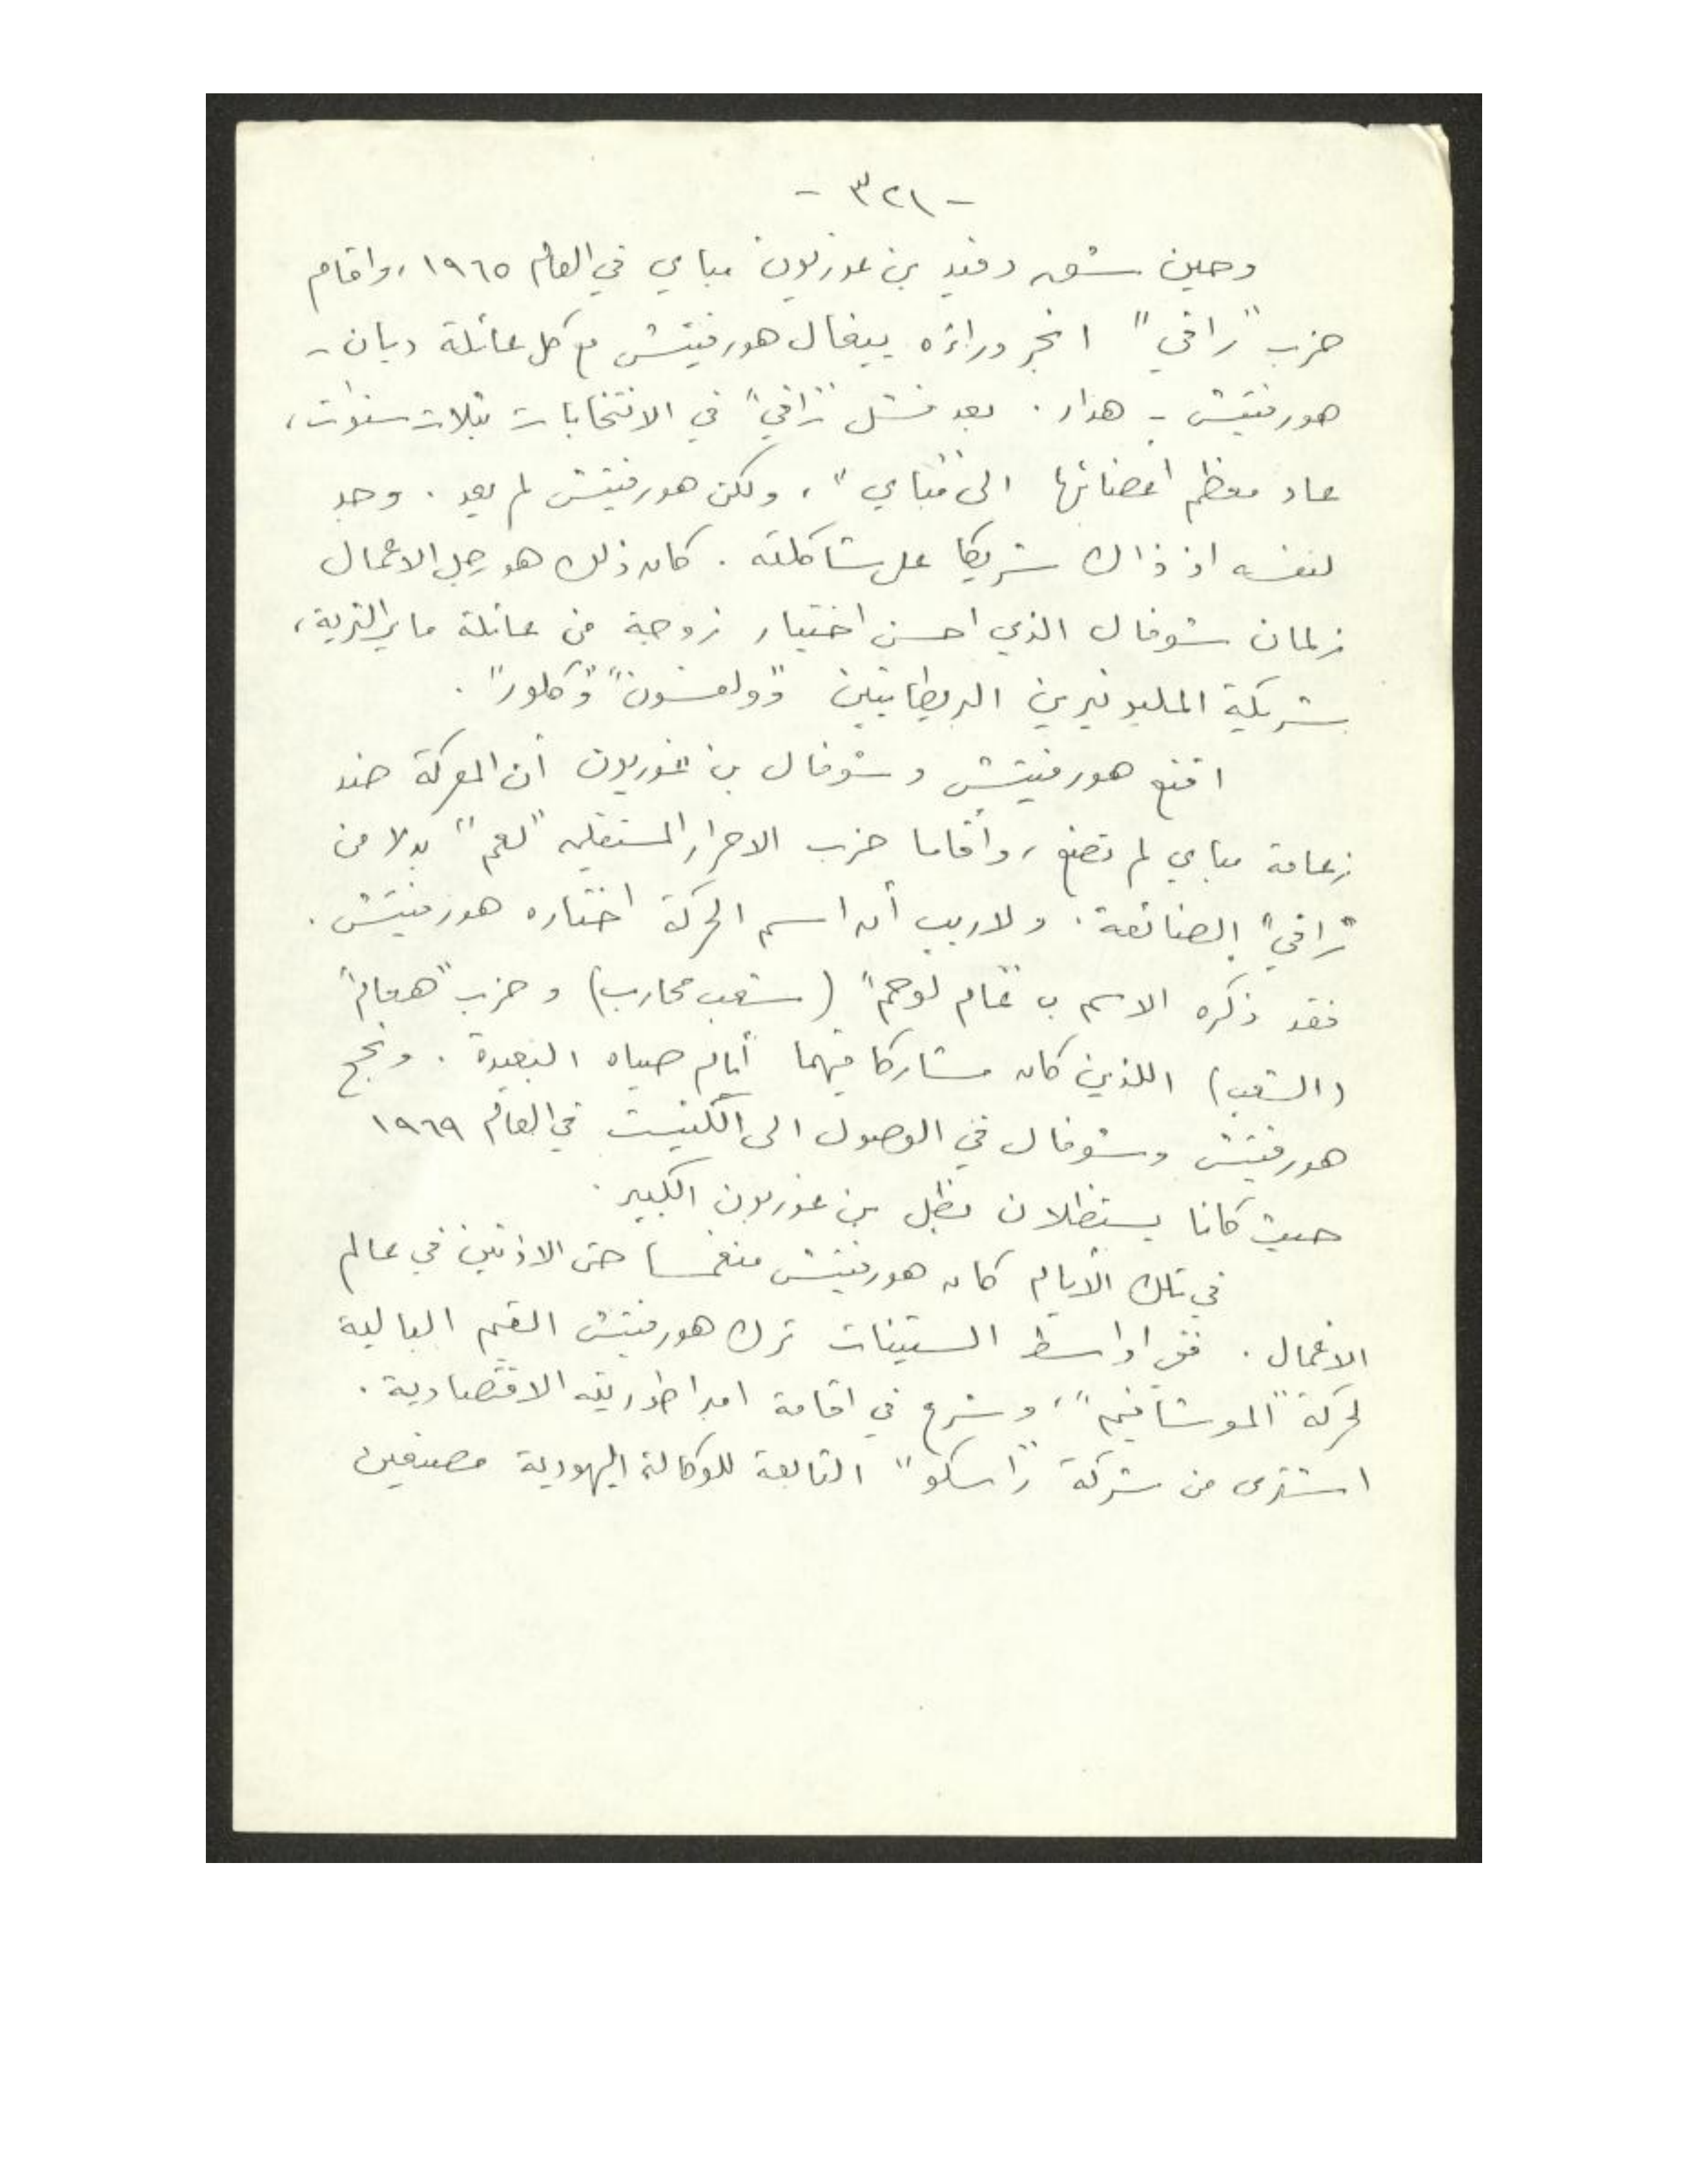 - ٣٢١ -
وحين شق دفيد بن غوريون مباي في العام ١٩٦٥، واقام
حزب "رافي" انجر وراءه ييغال هورفيتش مع كل عائلة ديان -
هورفيتش - هدار. بعد فشل "رافي" في الانتخابات بثلاث سنوات،
عاد معظم اعضائها الى "مباي"، ولكن هورفيتش لم يعد. وجد
لنفسه اذ ذاك شريكا على شاكلته. كان ذلك هو رجل الاعمال
زلمان شوفال الذي احسن اختيار زوجة من عائلة ماير الثرية،
شريكة المليونيرين البريطانيين "وولفسون" و"كلور".
اقنع هورفيتش وشوفال بن غوريون أن المعركة ضد
زعامة مباي لم تضع، وأقاما حزب الاحرار المستقلين "لعم" بدلا من
"رافي" الضائعة. ولا ريب أن اسم الحركة اختاره هورفيتش.
فقد ذكره الاسم ب "عام لوحم" (شعب محارب) وحزب "هعام"
(الشعب) اللذين كان مشاركا فيهما أيام صباه البعيدة. ونجح
هورفيتش وشوفال في الوصول الى الكنيست في العام ١٩٦٩
حيث كانا يستظلان بظل بن غوريون الكبير.
في تلك الأيام كان هورفيتش منغمسا حتى الاذنين في عالم
الاعمال. ففي اواسط الستينات ترك هورفيتش القيم البالية
لحركة "الموشافيم"، وشرع في اقامة امبراطوريته الاقتصادية.
اشترى من شركة "راسكو" التابعة للوكالة اليهودية مصنعين